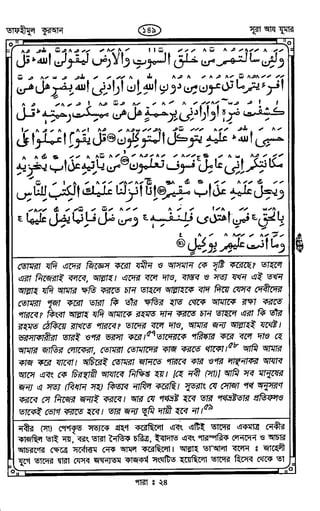 তাফহীমুল কুরআন ১৪৯ সূরা আয যুমার
وَلَئِنْ سَأَلْتَهُمْ مَنْ خَلَقَ السَّمٰوٰتِ وَالْاَرْضَ لَيَقُولُنَّ اللهُ ۚ قُلْ
اَفَرَءَيْتُمْ مَّا تَدْعُوْنَ مِنْ دُوْنِ اللهِ اِنْ اَرَادَنِيَ اللهُ بِضُرٍّ هَلْ هُنَّ
كٰشِفٰتُ ضُرِّهٖٓ اَوْ اَرَادَنِيْ بِرَحْمَةٍ هَلْ هُنَّ مُمْسِكٰتُ رَحْمَتِهٖ ۚ قُلْ
حَسْبِيَ اللهُ ۚ عَلَيْهِ يَتَوَكَّلُ الْمُتَوَكِّلُوْنَ قُلْ يٰقَوْمِ اعْمَلُوْا عَلٰى
مَكَانَتِكُمْ اِنِّيْ عَامِلٌ ۚ فَسَوْفَ تَعْلَمُوْنَ مَنْ يَّأْتِيْهِ عَذَابٌ يُّخْزِيْهِ
وَيَحِلُّ عَلَيْهِ عَذَابٌ مُّقِيْمٌ اِنَّآ اَنْزَلْنَا عَلَيْكَ الْكِتٰبَ لِلنَّاسِ
بِالْحَقِّ ۚ فَمَنِ اهْتَدٰى فَلِنَفْسِهٖ ۚ وَمَنْ ضَلَّ فَاِنَّمَا يَضِلُّ عَلَيْهَا ۚ
وَمَآ اَنْتَ عَلَيْهِمْ بِوَكِيْلٍ
তোমরা যদি এদের জিজ্ঞেস করো যমীন ও আসমান কে সৃষ্টি করেছে? তাহলে
এরা নিজেরাই বলবে, আল্লাহ। এদের বলে দাও, বাস্তব ও সত্য যখন এই তখন
আল্লাহ যদি আমার ক্ষতি করতে চান তাহলে আল্লাহকে বাদ দিয়ে যেসব দেবীদের
তোমরা পূজা করো তারা কি তাঁর ক্ষতির হাত থেকে আমাকে রক্ষা করতে
পারবে? কিংবা আল্লাহ যদি আমাকে রহমত দান করতে চান তাহলে এরা কি তাঁর
রহমত ঠেকিয়ে রাখতে পারবে? তাদের বলে দাও, আমার জন্য আল্লাহই যথেষ্ট।
ভরসাকারীরা তারই ওপর ভরসা করে। তাদেরকে পরিষ্কার করে বলে দাও হে
আমার জাতির লোকেরা, তোমরা তোমাদের কাজ করতে থাকো। আমি আমার
কাজ করে যাবো। অচিরেই তোমরা জানতে পারবে কার ওপর লাঞ্ছনাকর আযাব
আসে এবং কে চিরস্থায়ী আযাবে নিক্ষিপ্ত হয়। [হে নবী (সা)] আমি সব মানুষের
জন্য এ সত্য (বিধান সহ) কিতাব নাযিল করেছি। সুতরাং যে সোজা পথ অনুসরণ
করবে সে নিজের জন্যই করবে। আর যে পথভ্রষ্ট হবে তার পথভ্রষ্টতার প্রতিফলও
তাকেই ভোগ করতে হবে। তার জন্য তুমি দায়ী হবে না।
নবীর (সা) পেশকৃত সত্যকে গ্রহণ করেছিলো এবং এটিই তাদের একমাত্র নেকীর
কাজছিল তাই নয়, বরং তারা নৈতিক চরিত্র, ইবাদাত এবং পারস্পরিক লেনদেন ও আচার
আচরণের ক্ষেত্রে সর্বোত্তম নেক আমল করেছিলো। আল্লাহ তা'আলা বলেন : জাহেলী
যুগে তাদের দ্বারা যেসব জঘন্যতম কাজকর্ম সংঘটিত হয়েছিলো তাদের হিসেব থেকে তা
পারা : ২৪